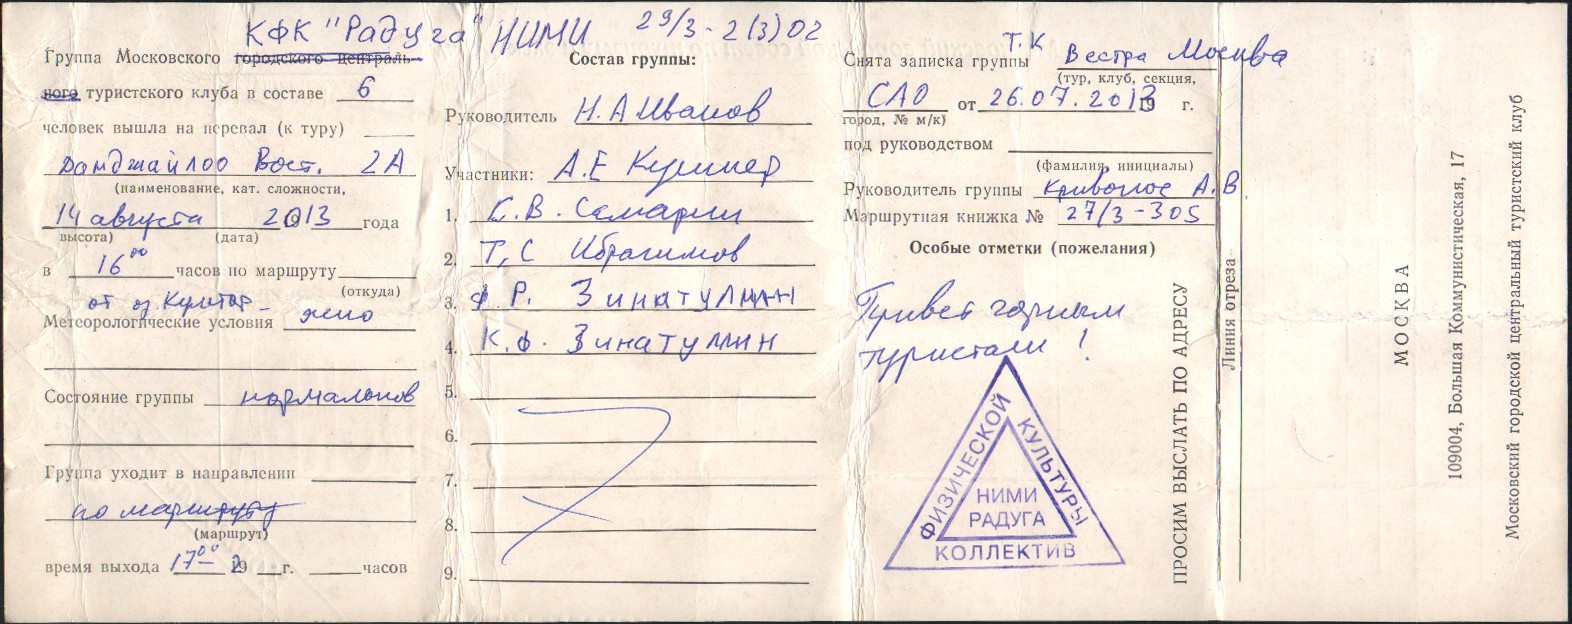 КФК "Радуга" НИМИ 29/3-2(3)02
Группа Московского городского централь-
ного туристского клуба в составе 6
человек вышла на перевал (к туру)
Замджайлоо Вост. 2А
(наименование, кат. сложности,
14 августа 2013 года
высота) (дата)
в 16 00 часов по маршруту
(откуда)
от оз.
Метеорологические условия ясно
Состояние группы
Группа уходит в направлении
по маршруту
(маршрут)
время выхода 17 00 19 г. часов
Состав группы:
Руководитель Н.А Иванов
Участники: А.Е Кушнер
1. К.В. Самарин
2. Т,С Ибрагимов
3. Ф Р. Зинатуллин
4. К.Ф. Зинатуллин
5.
6.
7.
8.
9.
Снята записка группы Т.К Вестра Москва
(тур, клуб, секция,
САО от 26.07.2013 г.
город, № м/к)
под руководством
(фамилия, инициалы)
Руководитель группы Кривонос А.В
Маршрутная книжка № 27/3-305
Особые отметки (пожелания)
Привет горным
туристам!
ФИЗИЧЕСКОЙ КУЛЬТУРЫ
НИМИ
РАДУГА
КОЛЛЕКТИВ
ПРОСИМ ВЫСЛАТЬ ПО АДРЕСУ
Линия отреза
МОСКВА
109004, Большая Коммунистическая, 17
Московский городской центральный туристский клуб